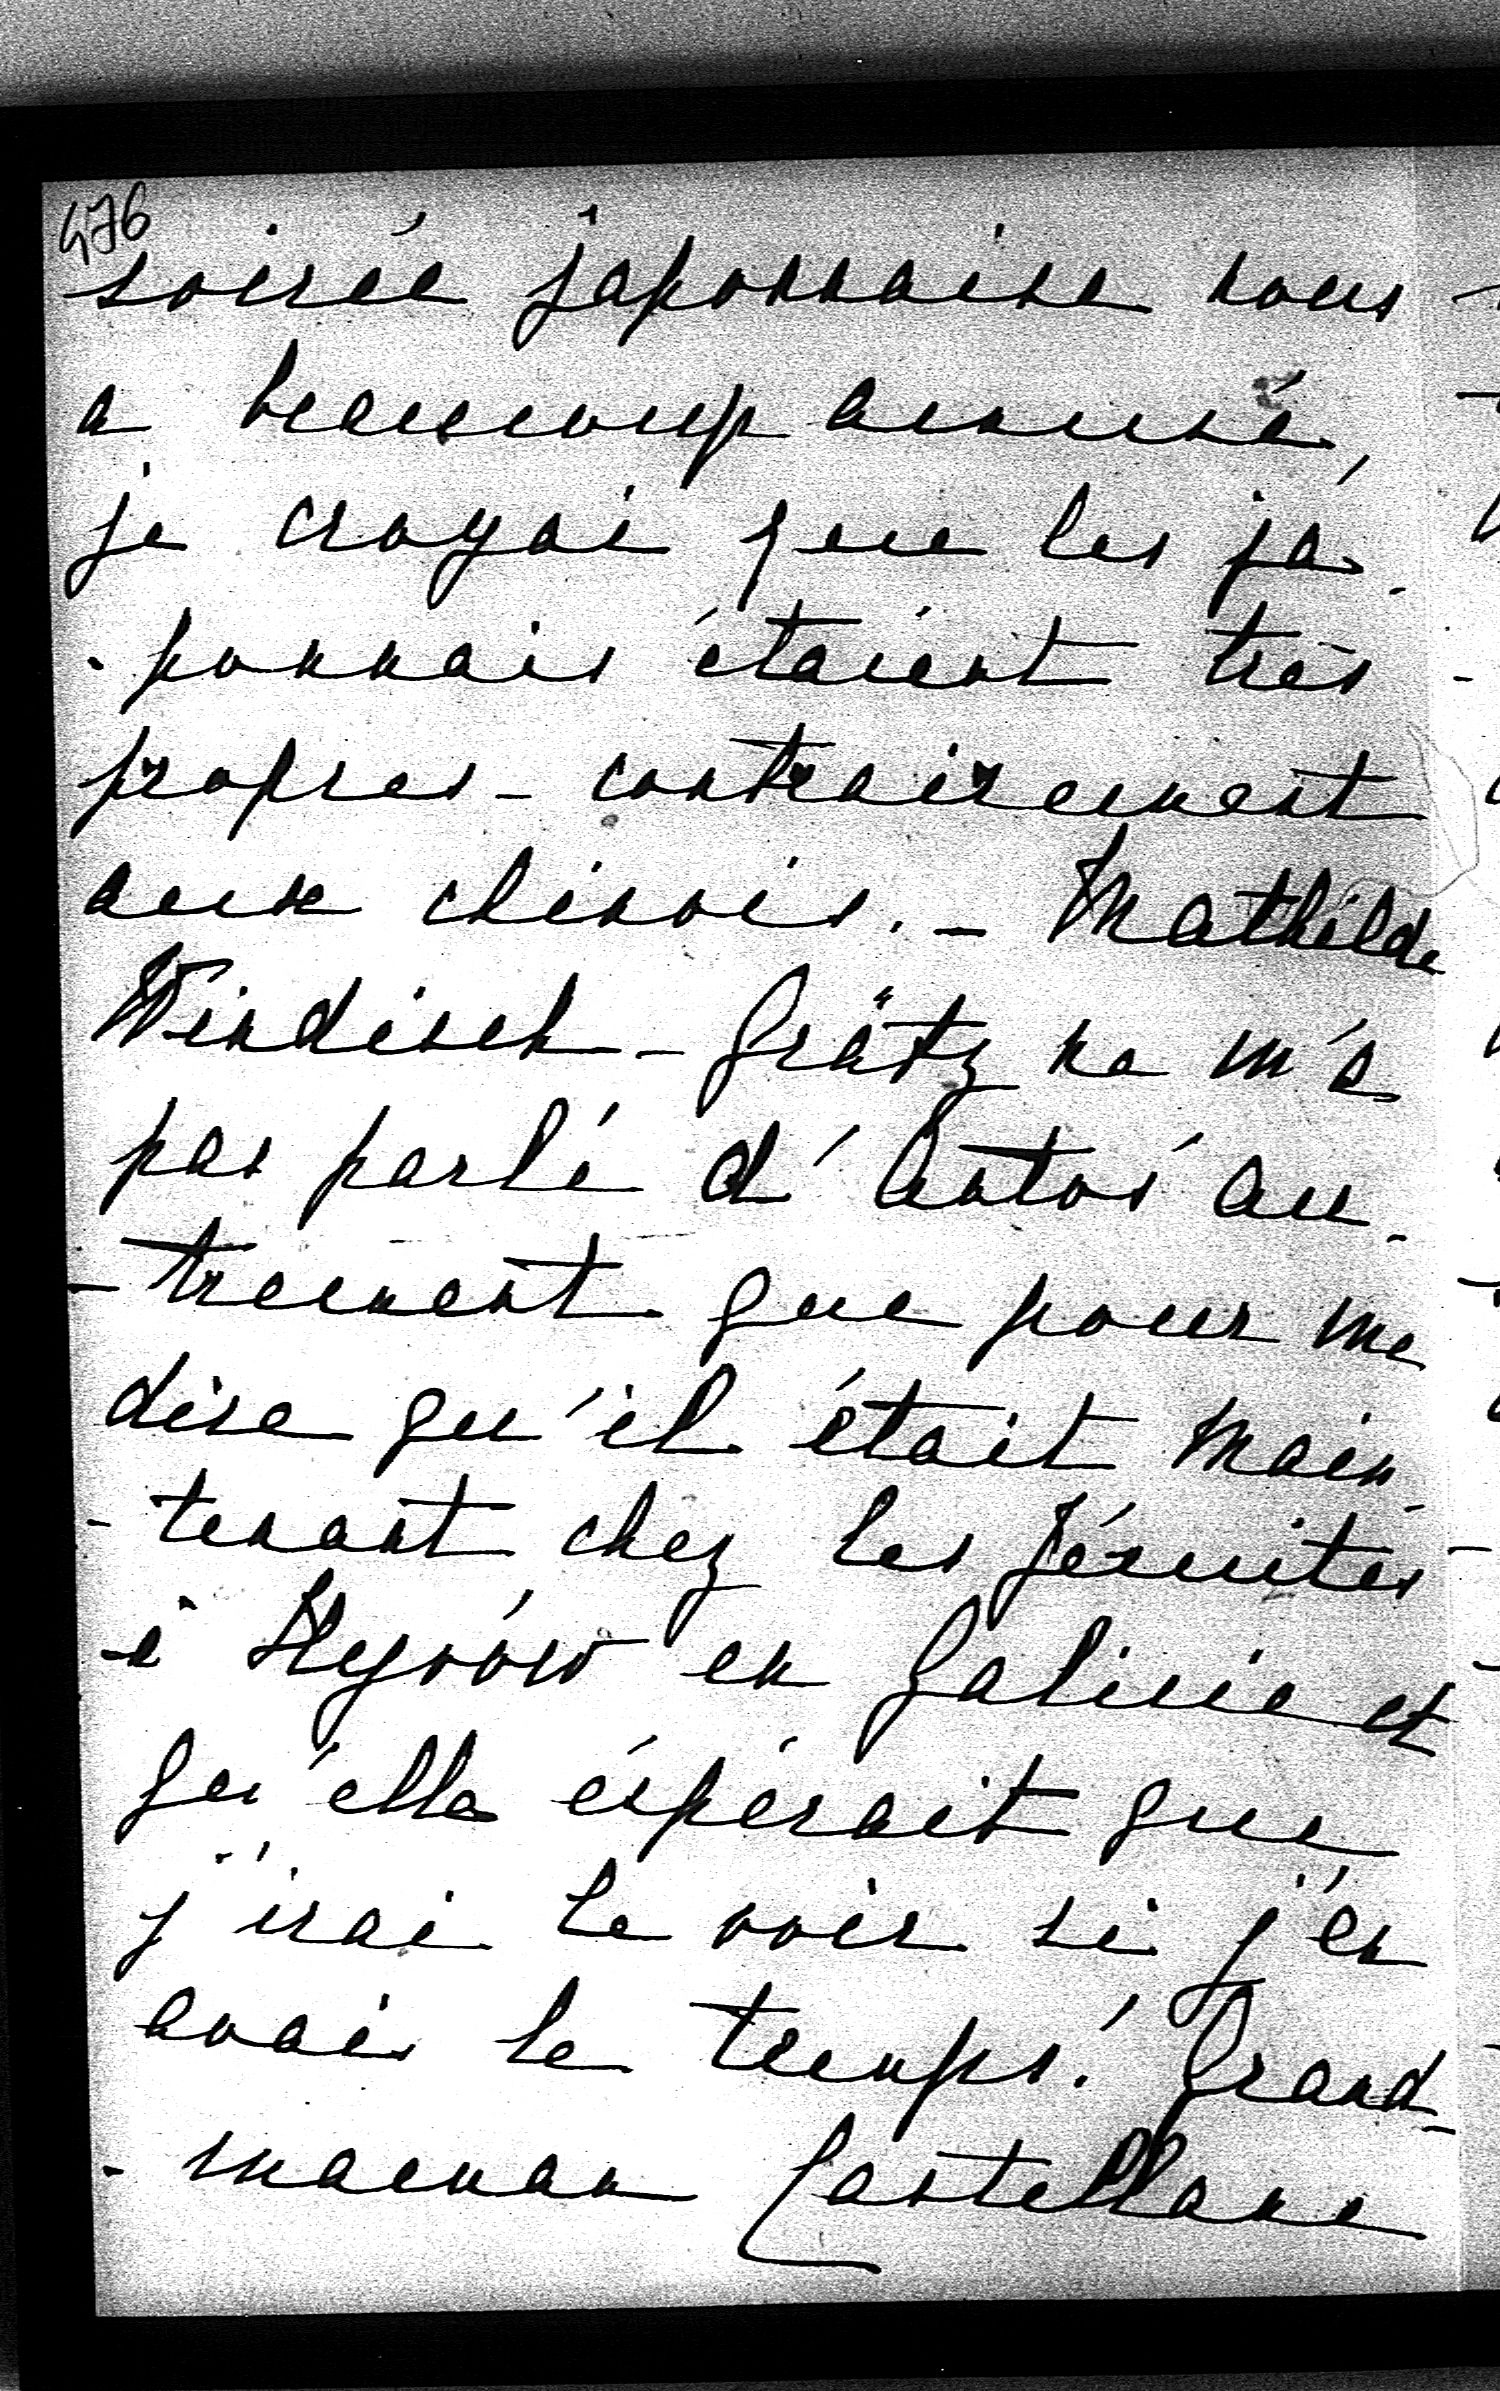 476
soirée japonnaise nous
a beaucoup amusé,
je croyai que les ja-
-ponnais étaient très
propres - contrairement
aux chinois. - Mathilde
Windisch-Grätz ne m'a
pas parlé d'Antos' au-
-trement que pour me
dire qu'il était main-
-tenant chez les Jésuites
à Hyrów en Galicie et
qu'elle éspérait que
j'irai le voir si j'en
avais le temps! Grand-
-maman Castellane